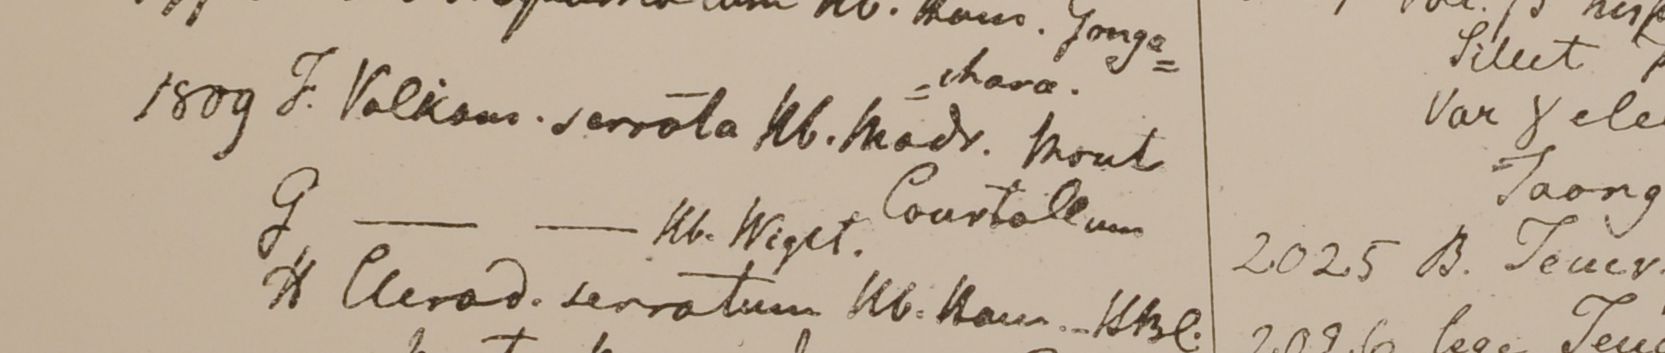 Hb. Ham. Gonga=
=chara.
1809 F. Volkam. serrata Hb. Madr. Mont
Courtallum
G — — Hb. Wight.
H Clerod. serratum Hb. Ham. HBC.
Sillet
Var γ ele
Taong
2025 B. Teucr.
2026 lege Teuc